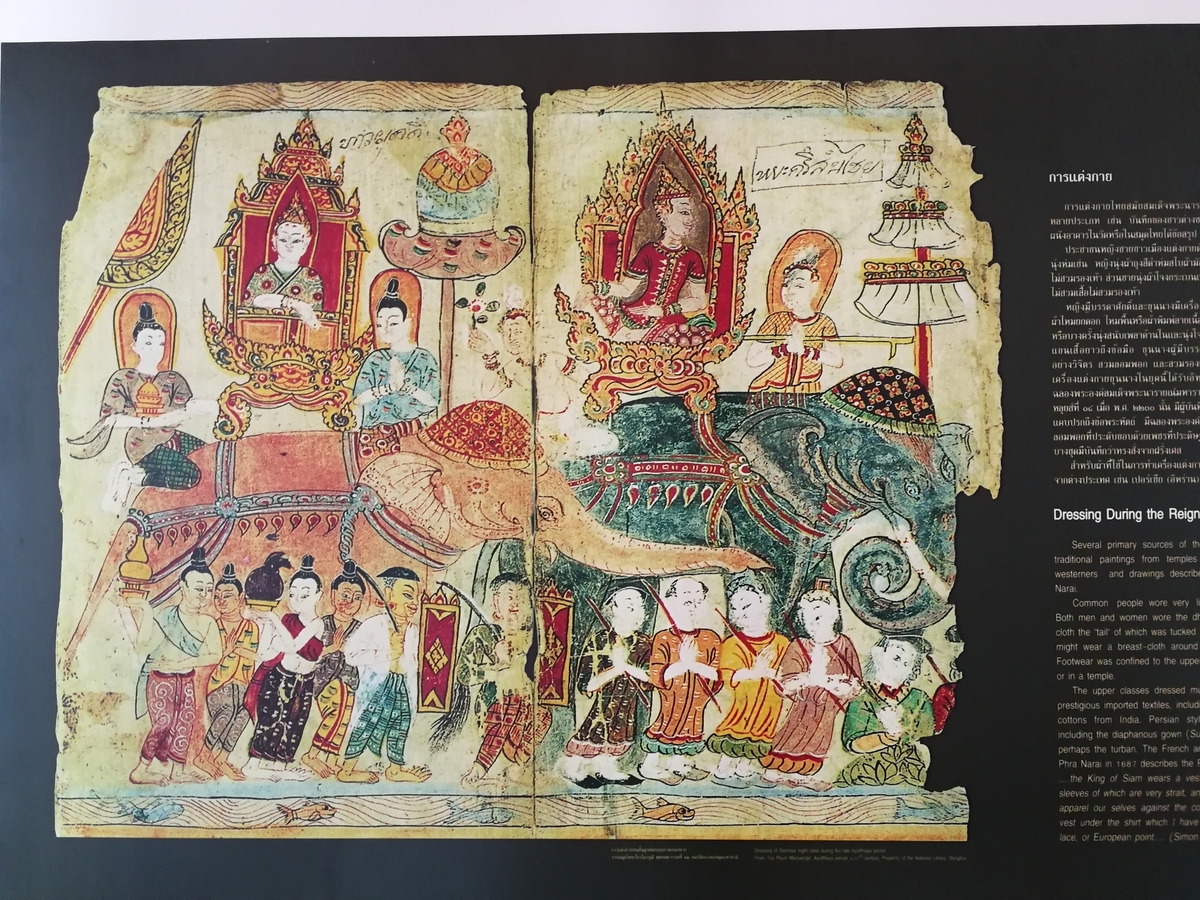 การแต่งกาย
การแต่งกายไทยสมัยสมเด็จพระนารา
หลายประเภท เช่น บันทึกของชาวต่าง
ผนังอาคารในวัดหรือในสมุดไทยได้ข้อสรุป
ประชาชนหญิงชายชาวเมืองแต่งกาย
นุ่งห่มเช่น หญิงนุ่งผ้าถุงสีดำห่มสไบผ้า
ไม่สวมรองเท้า ส่วนชายนุ่งผ้าโจงกระเบน
ไม่สวมเสื้อไม่สวมรองเท้า
หญิงมีบรรดาศักดิ์และขุนนางมีเครื่อง
ผ้าไหมยกดอก ไหมพื้นหรือผ้าพิมพ์ลายเนื้อ
หรือบางครั้งนุ่งสนับเพลาด้านในและนุ่งโจ
แขนเสื้อยาวถึงข้อมือ ขุนนางผู้มีบรร
อย่างวิจิตร สวมลอมพอก และสวมรอง
เครื่องแต่งกายขุนนางในยุคนี้ได้รับอิท
ฉลองพระองค์สมเด็จพระนารายณ์มหารา
หลุยส์ที่ ๑๔ เมื่อ พ.ศ. ๒๒๓๐ นั้น มีผู้บัน
แคบปรกถึงข้อพระหัตถ์ มีฉลองพระองค์
ลอมพอกที่ประดับขอบด้วยเพชรที่ประดับ
บางชุดมีบันทึกว่าทรงสั่งจากฝรั่งเศส
สำหรับผ้าที่ใช้ในการทำเครื่องแต่งกา
จากต่างประเทศ เช่น เปอร์เซีย (อิหร่าน)
Dressing During the Reign
Several primary sources of th
traditional paintings from temples
westerners and drawings describe
Narai.
Common people wore very li
Both men and women wore the dr
cloth the 'tail' of which was tucked
might wear a breast-cloth around
Footwear was confined to the upper
or in a temple.
The upper classes dressed mo
prestigious imported textiles, includi
cottons from India. Persian styl
including the diaphanous gown (Su
perhaps the turban. The French a
Phra Narai in 1687 describes the
....the King of Siam wears a ves
sleeves of which are very strait, an
apparel our selves against the co
vest under the shirt which I have
lace, or European point.... (Simon
Dressing of Siamese high class during the late Ayutthaya period
From Trai Phum Manuscript, Ayutthaya period, c 17th century. Property of the National Library, Bangkok